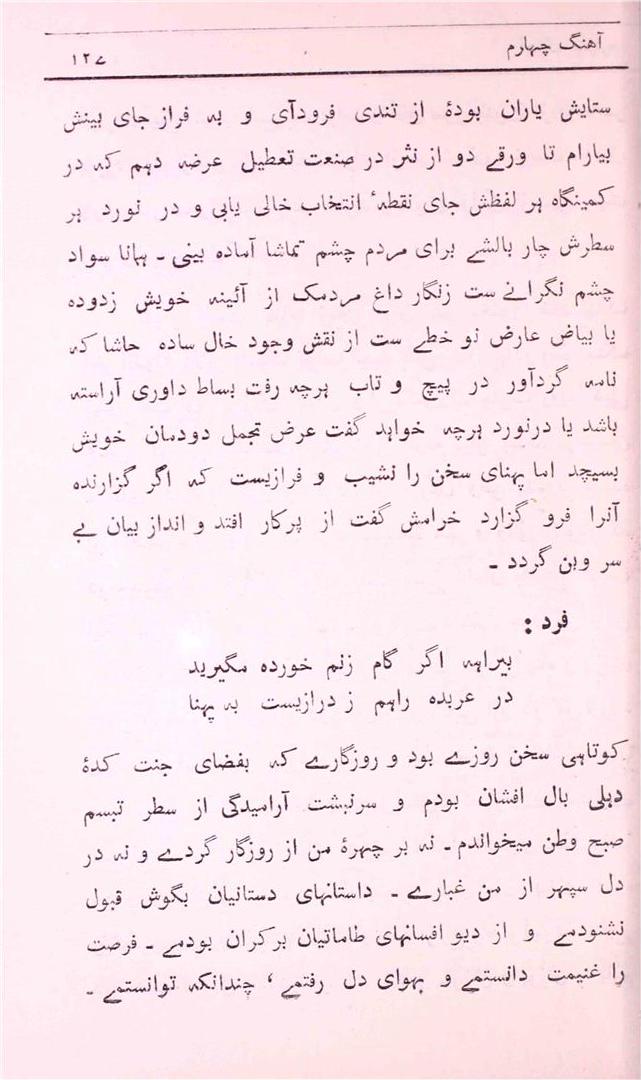 آهنگ چهارم ۱۲۷
ستایش یاران بودهٔ از تندی فرودآی و به فراز جای بینش
بیارام تا ورقے دو از نثر در صنعت تعطیل عرضہ دہم کہ در
کمینگاہ ہر لفظش جای نقطہٴ انتخاب خالی یابی و در نورد ہر
سطرش چار بالشے برای مردم چشم تماشا آمادہ بینی ۔ ہمانا سواد
چشم نگرانے ست زنگار داغ مردمک از آئینہ خویش زدودہ
یا بیاض عارض نو خطے ست از نقش وجود خال سادہ حاشا کہ
نامہ گردآور در پیچ و تاب ہرچہ رفت بساط داوری آراستہ
باشد یا درنورد ہرچہ خواہد گفت عرض تجمل دودمان خویش
بسیچد اما پہنای سخن را نشیب و فرازیست کہ اگر گزارندہ
آنرا فرو گزارد خرامش گفت از پرکار افتد و انداز بیان بے
سر وبن گردد ۔
فرد :
بیراہہ اگر گام زنم خوردہ مگیرید
در عربدہ راہم ز درازیست بہ پہنا
کوتاہی سخن روزے بود و روزگارے کہ بفضای جنت کدۂ
دہلی بال افشان بودم و سرنبشت آرامیدگی از سطر تبسم
صبح وطن میخواندم ۔ نہ بر چہرۂ من از روزگار گردے و نہ در
دل سپہر از من غبارے ۔ داستانہای دستانیان بگوش قبول
نشنودمے و از دیو افسانہای طاماتیان برکران بودمے ۔ فرصت
را غنیمت دانستمے و بہوای دل رفتمے ، چندانکہ توانستمے ۔